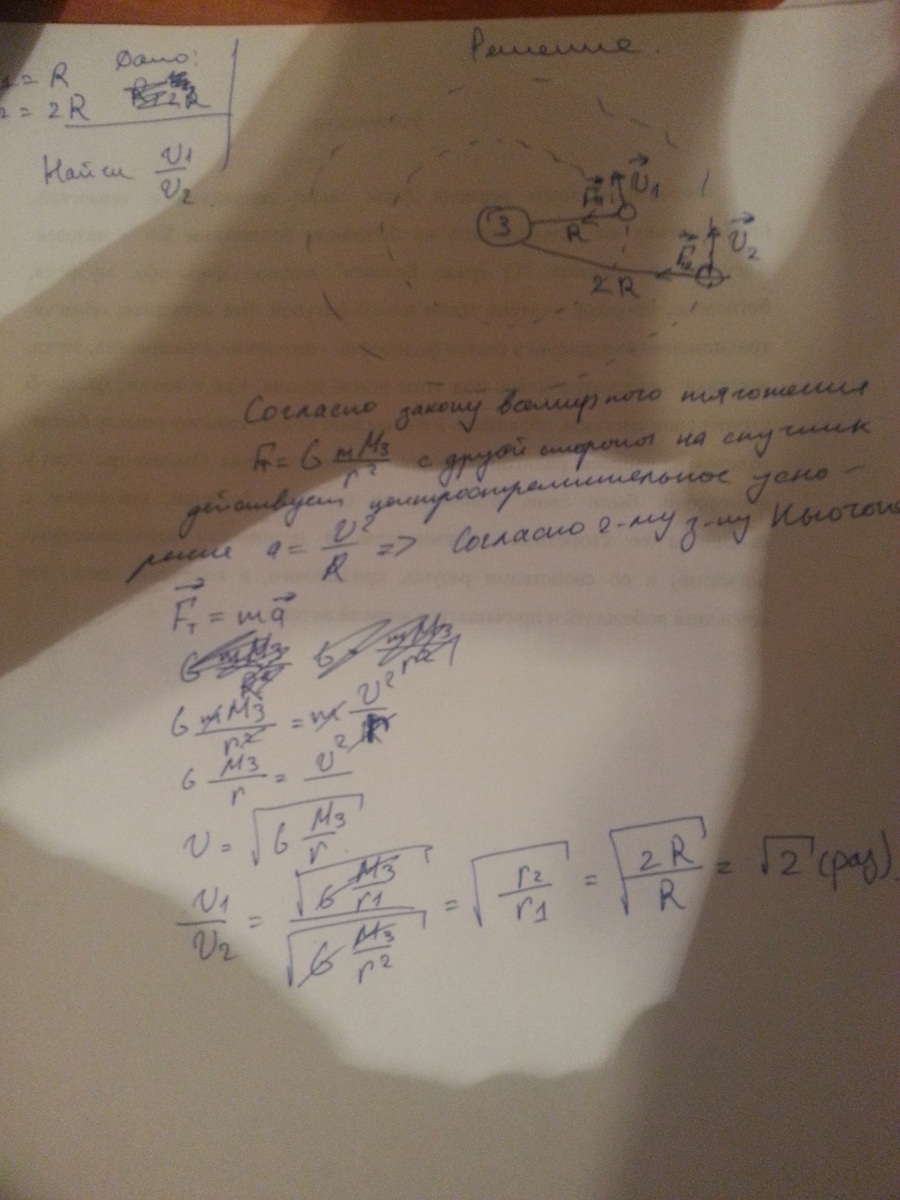 Решение.
Дано:
r1 = R
r2 = 2R
Найти v1/v2
З
R
2R
F1
v1
F2
v2
Согласно закону всемирного тяготения
Fт = G mMз/r² с другой стороны на спутник
действует центростремительное уско-
рение a = v²/R => Согласно 2-му з-ну Ньютона
Fт = ma
G mMз/r² = m v²/R
G Mз/r = v²
v = √(G Mз/r)
v1/v2 = √(G Mз/r1) / √(G Mз/r2) = √(r2/r1) = √(2R/R) = √2 (раз).